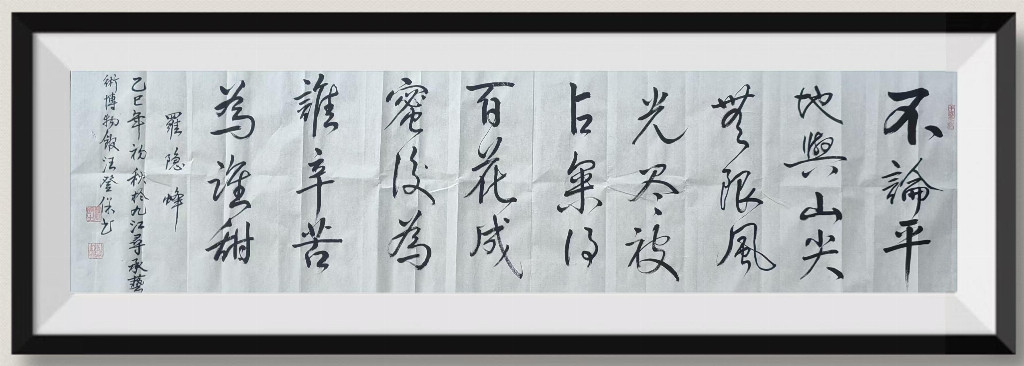 不論平
地與山尖
無限風
光尽被
占采得
百花成
蜜後為
誰辛苦
為誰甜
羅隐蜂
乙巳年初秋於九江尋承藝
術博物館汪登保书